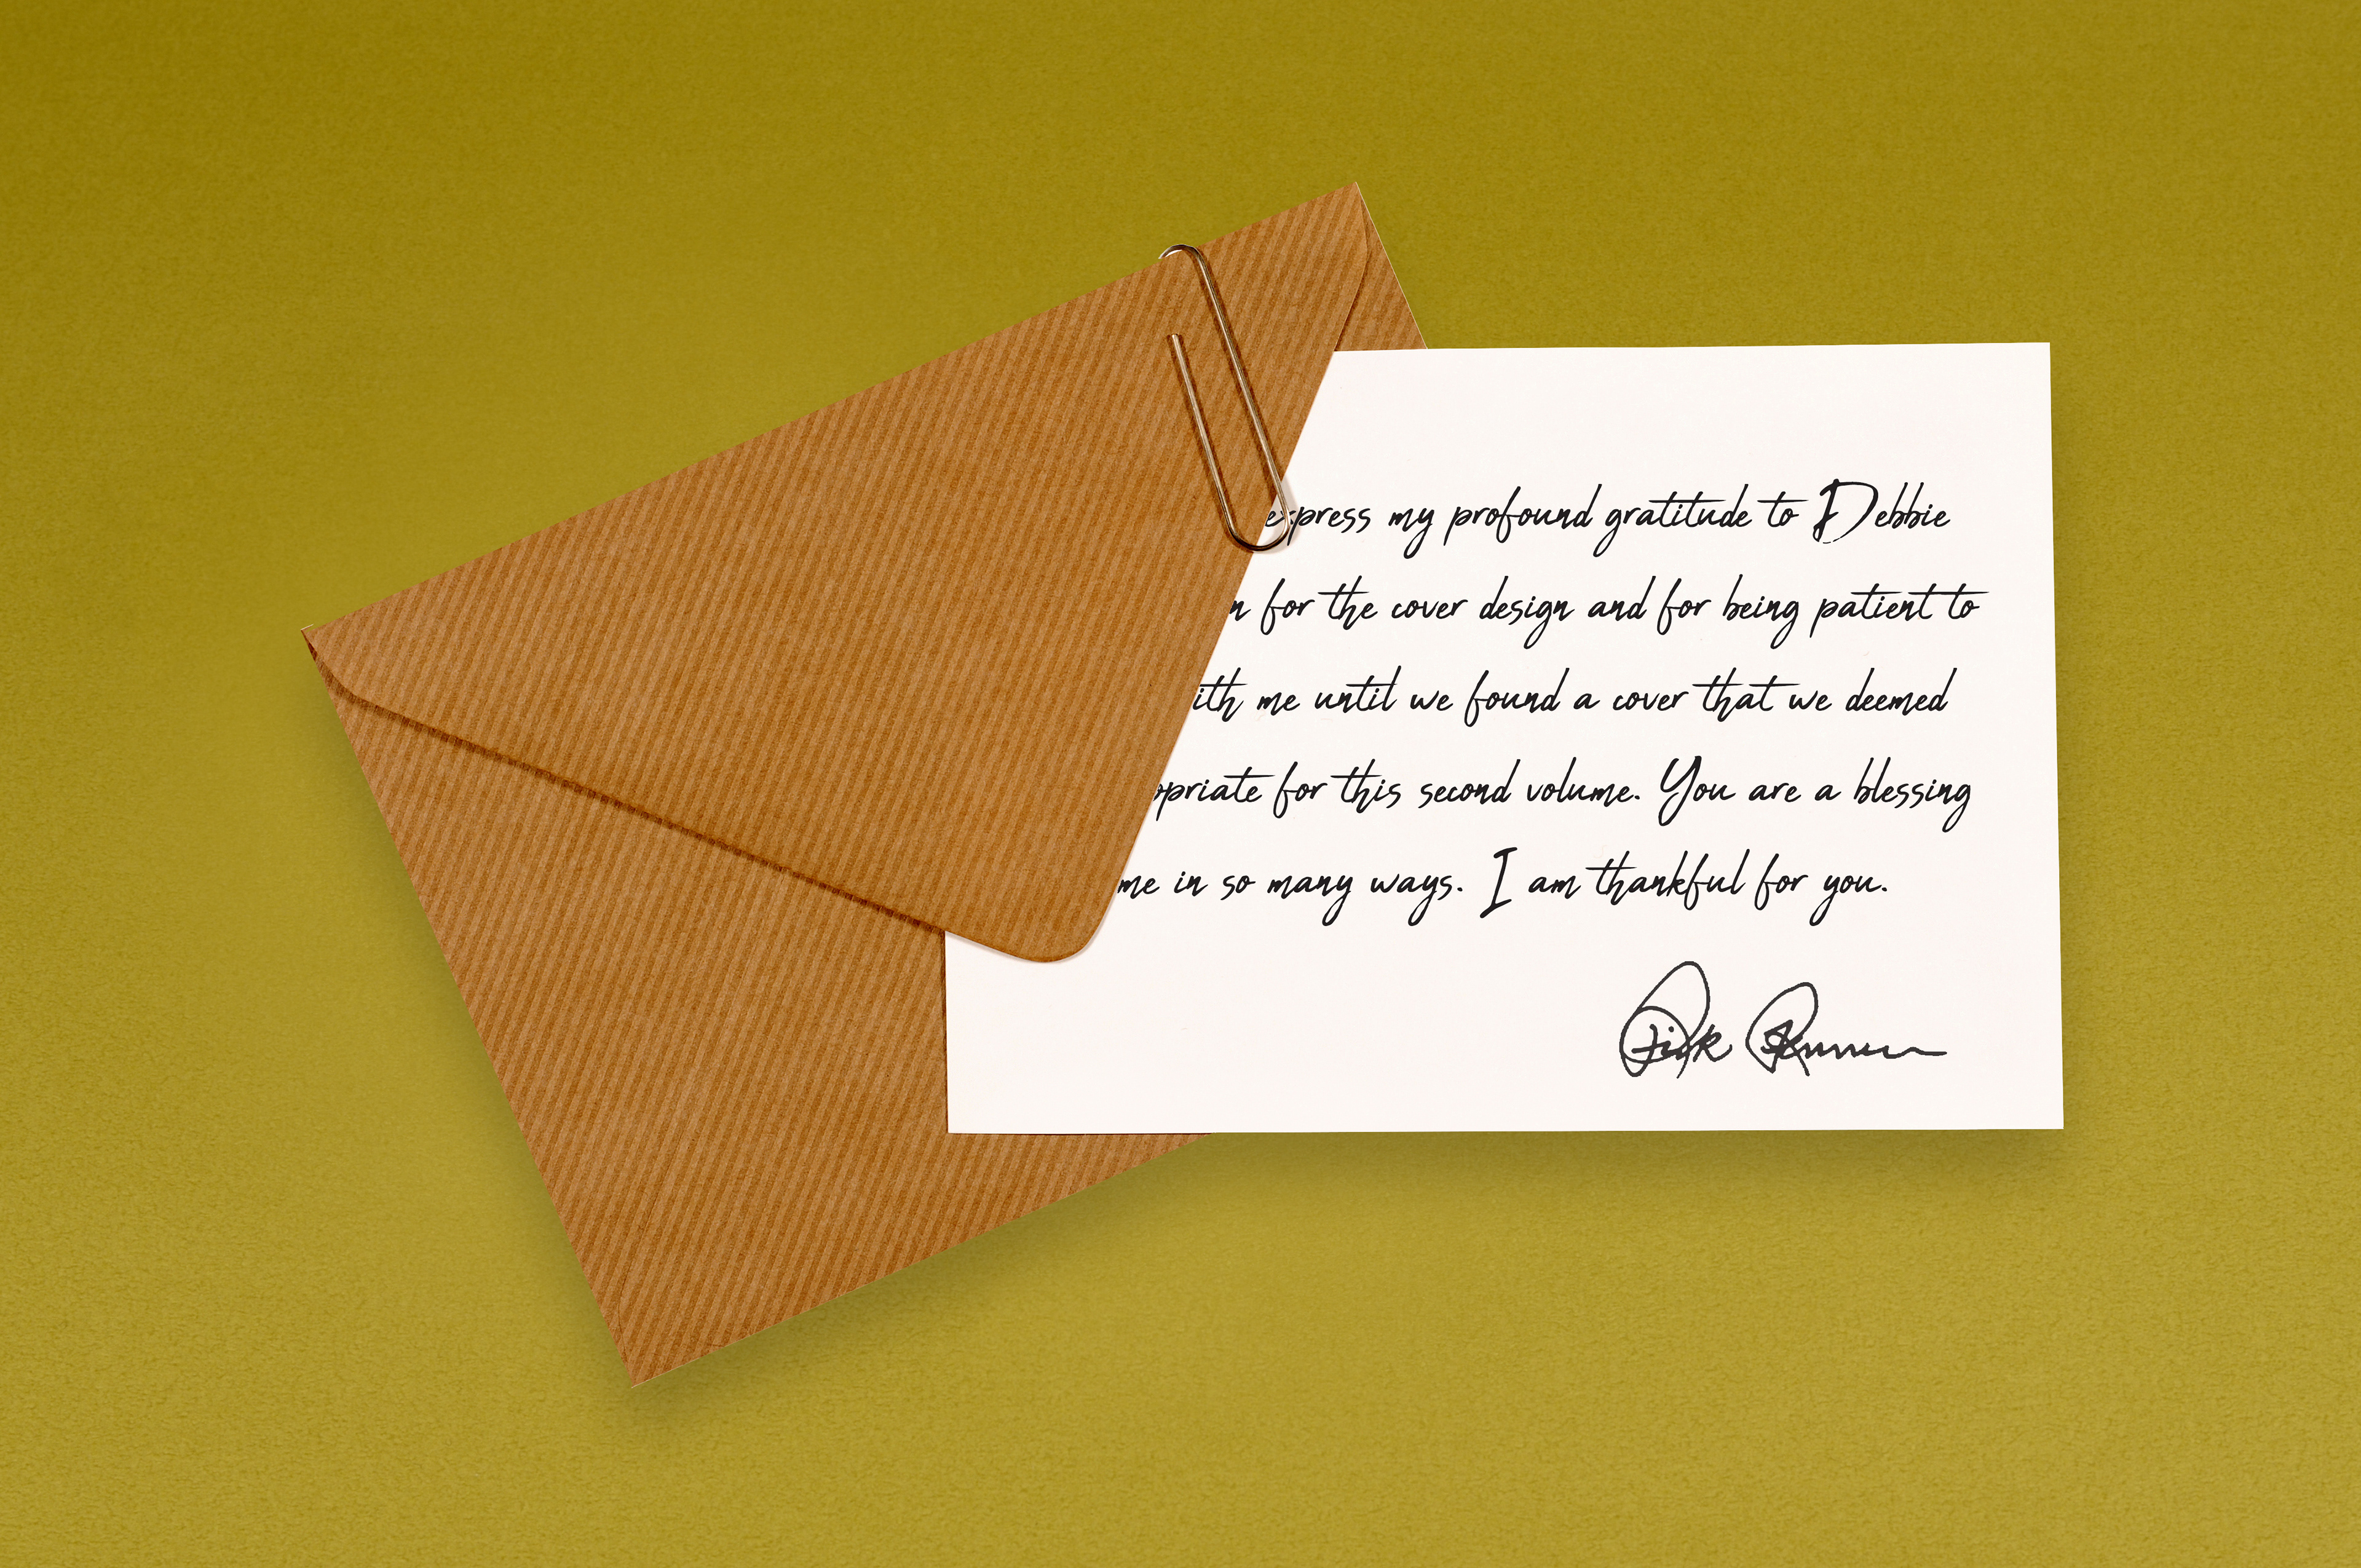 express my profound gratitude to Debbie
n for the cover design and for being patient to
ith me until we found a cover that we deemed
opriate for this second volume. You are a blessing
me in so many ways. I am thankful for you.